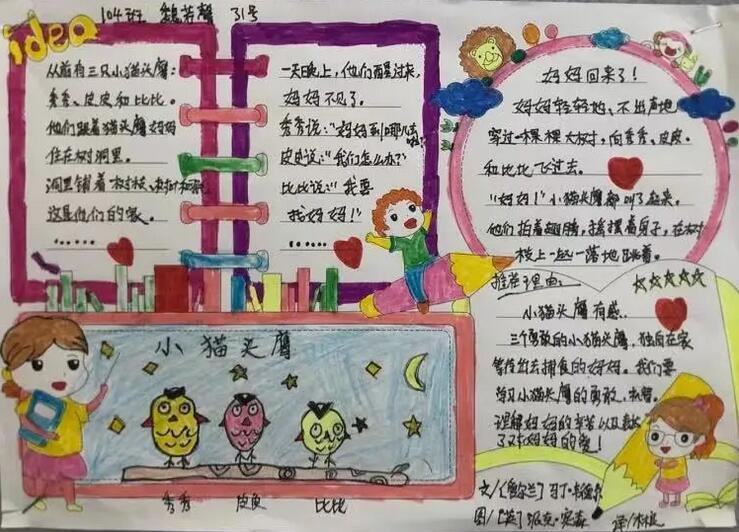 104班 魏芳馨 31号
idea
从前有三只小猫头鹰：
秀秀、皮皮和比比。
他们跟着猫头鹰妈妈
住在树洞里。
洞里铺着树枝、树叶和
这是他们的家。
......
一天晚上，他们醒过来，
妈妈不见了。
秀秀说："妈妈到哪儿去啦？"
皮皮说："我们怎么办？"
比比说："我要
找妈妈！"
......
妈妈回来了！
妈妈轻轻地、不出声地
穿过一棵棵大树，向秀秀、皮皮
和比比飞过去。
"妈妈！"小猫头鹰都叫了起来。
他们拍着翅膀，摇摆着身子，在树
枝上一起一落地跳着。
推荐理由：
小猫头鹰有感
三个勇敢的小猫头鹰，独自在家
等待出去捕食的妈妈。我们要
学习小猫头鹰的勇敢、
理解妈妈的辛苦以及
了对妈妈的爱！
小猫头鹰
秀秀 皮皮 比比
文/[爱尔兰]马丁·韦德尔
图/[英]派克·宾森 译/林良